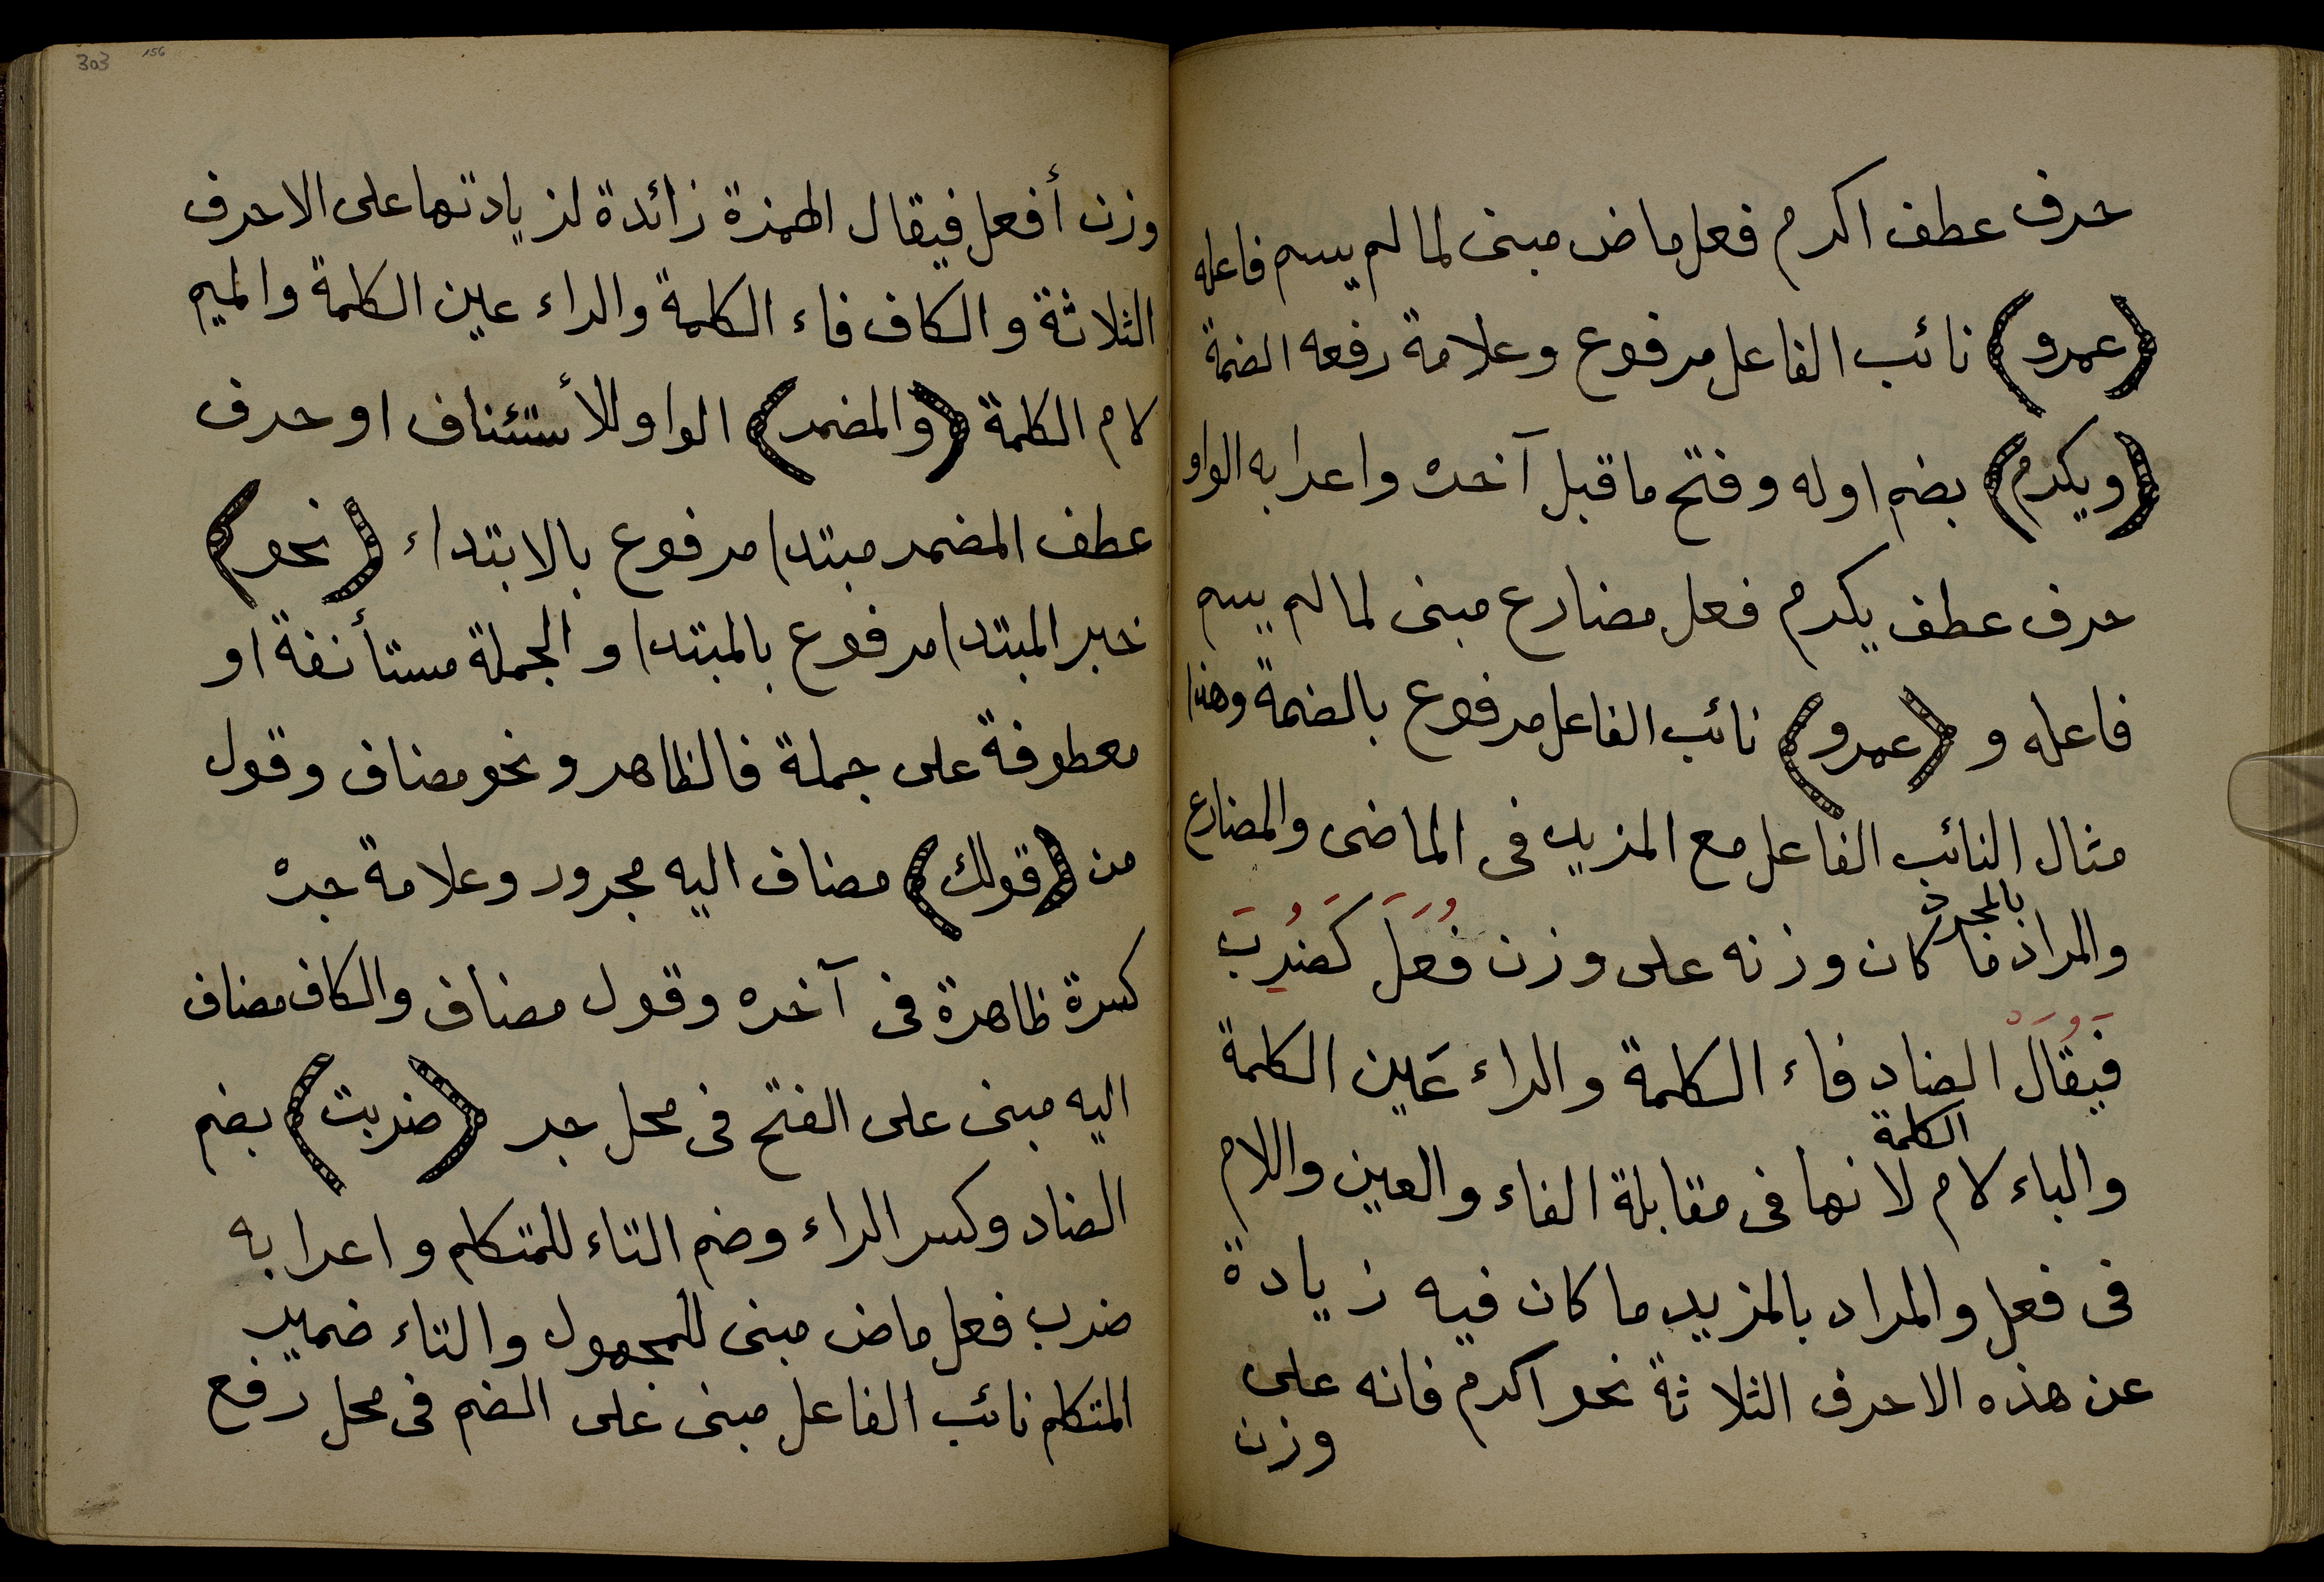 حرف عطف اكرم فعل ماض مبنى لما لم يسم فاعله
(عمرو) نائب الفاعل مرفوع وعلامة رفعه الضمة
(ويكرم) بضم اوله وفتح ما قبل آخره واعرابه الواو
حرف عطف يكرم فعل مضارع مبنى لما لم يسم
فاعله و (عمرو) نائب الفاعل مرفوع بالضمة وهذا
مثال النائب الفاعل مع المزيد فى الماضى والمضارع
بالمجرد
والمراد ما كان وزنه على وزن فُعِلَ كَضُرِبَ
فَيُقَالَ الضاد فاء الكلمة والراء عَين الكلمة
الكلمة
والباء لام لانها فى مقابلة الفاء والعين واللام
فى فعل والمراد بالمزيد ما كان فيه زيادة
عن هذه الاحرف الثلاثة نحو اكرم فانه على
وزن
303 156
وزن أفعل فيقال الهمزة زائدة لزيادتها على الاحرف
الثلاثة والكاف فاء الكلمة والراء عين الكلمة والميم
لام الكلمة (والمضمر) الواو للأستئناف او حرف
عطف المضمر مبتدا مرفوع بالابتداء (نحو)
خبر المبتدا مرفوع بالمبتدا والجملة مستأنفة او
معطوفة على جملة فالظاهر ونحو مضاف وقول
من (قولك) مضاف اليه مجرور وعلامة جره
كسرة ظاهرة فى آخره وقول مضاف والكاف مضاف
اليه مبنى على الفتح فى محل جر (ضربت) بضم
الضاد وكسر الراء وضم التاء للمتكلم واعرابه
ضرب فعل ماض مبنى للمجهول والتاء ضمير
المتكلم نائب الفاعل مبنى على الضم فى محل رفع